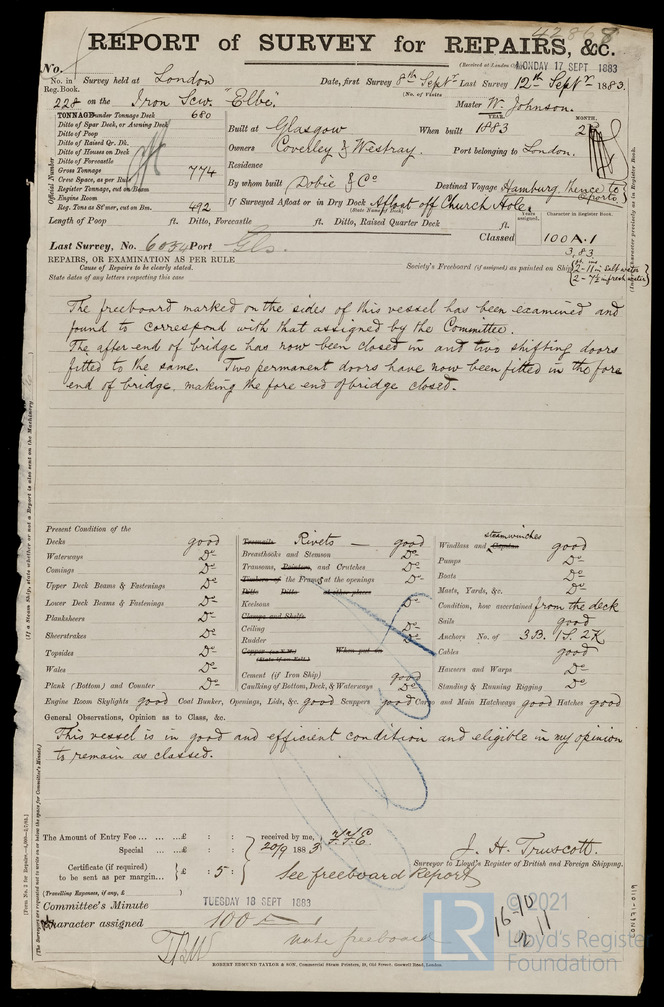 42868
REPORT of SURVEY for REPAIRS, &c.
No.
(Received at London MONDAY 17 SEPT 1883
No. in Reg. Book. Survey held at London Date, first Survey 8th Septr Last Survey 12th Septr 1883.
(No. of Visits)
228 on the Iron Scw. "Elbe" Master W. Johnson.
TONNAGE under Tonnage Deck 680
Ditto of Spar Deck, or Awning Deck
Ditto of Poop
Ditto of Raised Qr. Dk.
Ditto of Houses on Deck
Ditto of Forecastle
Gross Tonnage 774
Crew Space, as per Rule
Register Tonnage, cut on Beam
Engine Room
Reg. Tons as St'mer, cut on Bm. 492
Official Number
Built at Glasgow When built YEAR. 1883 MONTH. 2
Owners Coverley & Westray. Port belonging to London.
Residence
By whom built Dobie & Co Destined Voyage Hamburg, hence to Oporto
If Surveyed Afloat or in Dry Dock Afloat off Church Hole.
(State Name of Dock)
Length of Poop ft. Ditto, Forecastle ft. Ditto, Raised Quarter Deck ft.
Years assigned. Character in Register Book.
Last Survey, No. 6034 Port Gls. Classed 100 A.1
3,83
REPAIRS, OR EXAMINATION AS PER RULE
Cause of Repairs to be clearly stated.
State dates of any letters respecting this case
Society's Freeboard (if assigned) as printed on Ship
2-11 in Salt water
2-7½ in fresh water
The freeboard marked on the sides of this vessel has been examined and
found to correspond with that assigned by the Committee.
The after end of bridge has now been closed in and two shifting doors
fitted to the same. Two permanent doors have now been fitted in the fore
end of bridge, making the fore end of bridge closed.
Present Condition of the
Decks good
Waterways Do
Comings Do
Upper Deck Beams & Fastenings Do
Lower Deck Beams & Fastenings Do
Planksheers Do
Sheerstrakes Do
Topsides Do
Wales Do
Plank (Bottom) and Counter Do
Treenails Rivets good
Breasthooks and Stemson Do
Transoms, Pointers, and Crutches Do
Timbers of the Frames at the openings Do
Ditto Ditto at other places
Keelsons Do
Clamps and Shelfs
Ceiling Do
Rudder Do
Copper (or Y.M.) When put on
(State if on Felt)
Cement (if Iron Ship) good
Caulking of Bottom, Deck, & Waterways Do
Windlass and Capstan steamwinches good
Pumps Do
Boats Do
Masts, Yards, &c. Do
Condition, how ascertained from the deck
Sails good
Anchors No. of 3B. 1S. 2K
Cables good
Hawsers and Warps Do
Standing & Running Rigging Do
Engine Room Skylights good Coal Bunker, Openings, Lids, &c. good Scuppers good Cargo and Main Hatchways good Hatches good
General Observations, Opinion as to Class, &c.
This vessel is in good and efficient condition and eligible in my opinion
to remain as classed.
The Amount of Entry Fee £ : : received by me,
Special : : 20/9 1883
Certificate (if required) to be sent as per margin £ : 5 :
See freeboard Report
(Travelling Expenses, if any, £ )
J. H. Truscott.
Surveyor to Lloyd's Register of British and Foreign Shipping.
Committee's Minute TUESDAY 18 SEPT 1883
Character assigned 100 A
note freeboard
16-10
ROBERT EDMUND TAYLOR & SON, Commercial Steam Printers, 19, Old Street, Goswell Road, London.
(If a Steam Ship, state whether or not a Report is also sent on the Machinery
LR
© 2021
Lloyd's Register
Foundation